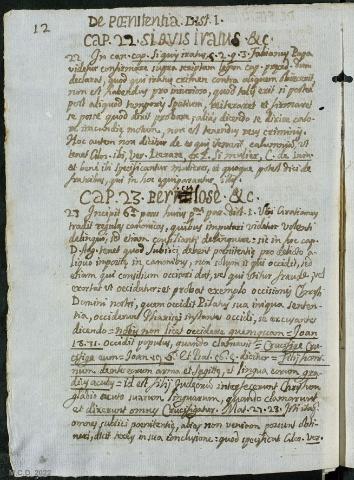 12
De Pœnitentia. Dist. 1.
Cap. 22. Si quis iratus &c.
22 In can. cap. Si quis iratus 5. 2. q. 3. Fabianus Papa
videtur confirmare supra
declarat, quod qui iratus crimen contra aliquem obiecerit,
non est habendus pro inimico, quod tale erit si postea
post aliquod temporis spatium, reiteraret et firmaret
se posse quod dixit probare, alias dicendo se dixisse calo
re iracundiæ motum, non est tenendus reus criminis.
Hoc autem non dicitur de eo qui veraciter calumniatur, ut
tenet Glos. ibi, ver.
et bene ibi specificantur mulieres, et quaque potest dici de
fratribus, qui in hoc equiparantur
Cap. 23. Periculose. &c.
23 Incipit 6ª pars huius Dist. 1. Ubi Gratianus
tradit regulas canonicas, quibus imputari videtur volenti
delinquere, id etiam consilianti delinquere: sic in hoc cap.
D. Aug. tenet quod subiici debent pœnitentiæ pro delicto a
liquo imposita in canonibus, non solum is qui occidit, sed
etiam qui consilium occisori dat, vel qui utitur fraude, vel
exortat ut occidatur: et probat exemplo occisionis Christi
Domini nostri, quem occidit Pilatus sua iniqua senten-
tia, occiderunt Pharisei instantes occidi, se excusantes
dicendo = nobis non licet occidere quemquam = Joan
18. 31. Occidit populus, quando clamavit = Crucifige Cru
cifige eum = Joan. 19. 6. et Psal. 56. 5. dicitur = Filii homi-
num dentes eorum arma et sagittæ, et lingua eorum gla-
dius acutus = Id est filii Judeorum interfecerunt Christum
gladio acuto suarum linguarum, quando clamarunt
et dixerunt omnes Crucifigatur. Mat. 27. 23.
omnes subiici pœnitentiæ, aliàs non veniam possunt obti-
nere, dicit textus in sua conclusione: quod specificat Glos. ver.
M.C.D. 2022